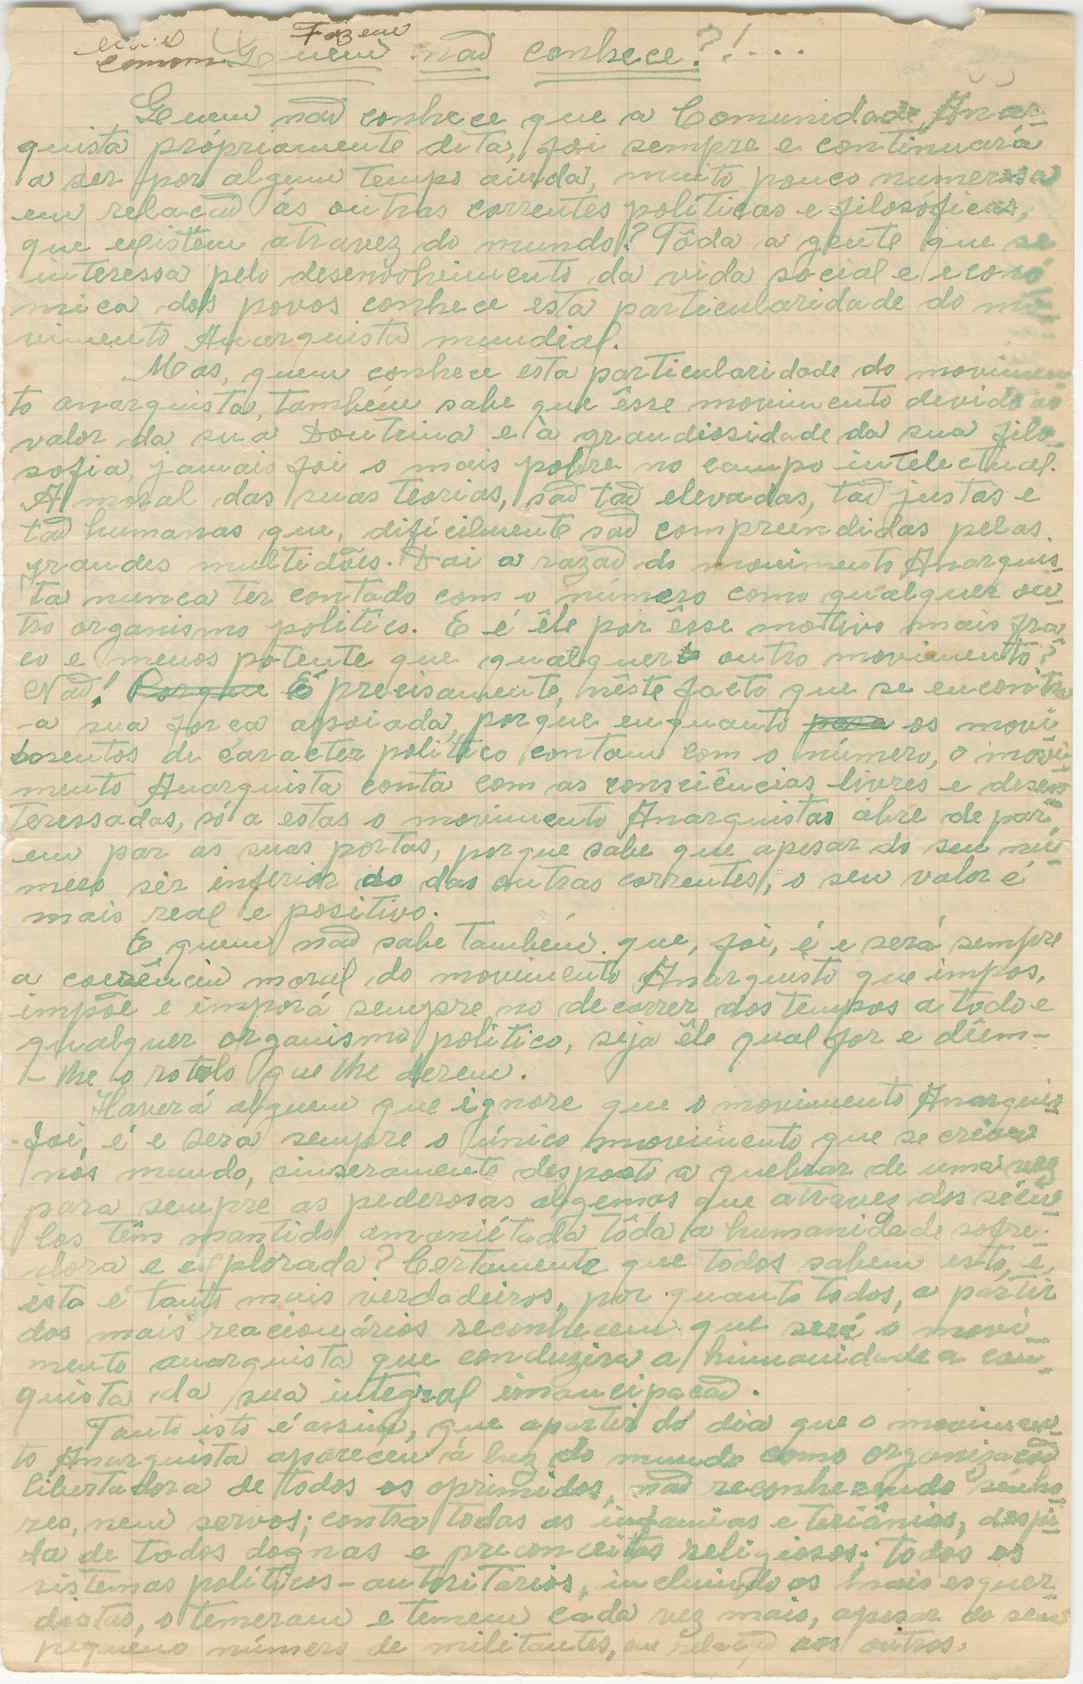 Fazem
Quem não conhece?!...
Quem não conhece que a Comunidade Anar-
quista própriamente dita, foi sempre e continuará
a ser por algum tempo ainda, muito pouco numerosa
em relação ás outras correntes políticas e filosoficas,
que existem atravez do mundo? Tôda a gente que se
interessa pelo desenvolvimento da vida social e econó-
mica dos povos conhece esta particularidade do mo-
vimento Anarquista mundial.
Mas, quem conhece esta particularidade do movimen-
to anarquista, tambem sabe que êsse movimento devido ao
valor da sua Doutrina e à grandiosidade da sua filo-
sofia, jamais foi o mais pobre no campo intelectual.
A moral das suas teorias, são tão elevadas, tão justas e
tão humanas que, dificilmente são compreendidas pelas
grandes multidões. Dai a razão do movimento Anarquis-
ta nunca ter contado com o número como qualquer ou-
tro organismo político. E é êle por êsse motivo mais fra-
co e menos potente que qualquer outro movimento?
Não! Porque É precisamente, nêste facto que se encontra
a sua força apoiada, porque enquanto para os movi-
mentos de caracter político contam com o número, o movi-
mento Anarquista conta com as consciências livres e desen-
teressadas, só a estas o movimento Anarquistas abre de par
em par as suas portas, porque sabe que apesar do seu nú-
mero ser inferior ao das outras correntes, o seu valor é
mais real e positivo.
E quem não sabe também que, foi, é e será sempre
a coerência moral do movimento Anarquista que impos,
impõe e imporá sempre no decorrer dos tempos a todo e
qualquer organismo político, seja êle qual for e dêem-
-lhe o rotolo que lhe derem.
Haverá alguem que ignore que o movimento Anarquis
foi, é e sera sempre o único movimento que se criou
nos mundo, sinseramente desposto a quebrar de uma vez
para sempre as pederosas algemas que atravez dos sécu-
los têm mantido amaniétada tôda a humanidade sofre-
dora e explorada? Certamente que todos sabem isto, e,
isto é tanto mais verdadeiros, por quanto todos, a partir
dos mais reacionários reconhecem que será o movi-
mento anarquista que conduzira a humanidade a con-
quista da sua integral emancipação.
Tanto isto é assim, que apartir do dia que o movimen-
to Anarquista apareceu á luz do mundo como organização
libertadora de todos os oprimidos, não reconhecendo senho
res, nem servos; contra todas as infamias e teriânias, despi-
da de todos dogmas e preconceitos religiosos; todos os
sistemas politicos-autoritarios, incluindo os mais esquer
distas, o temeram e temem cada vez mais, apesar do seu
pequeno número de militantes, em relação aos outros.